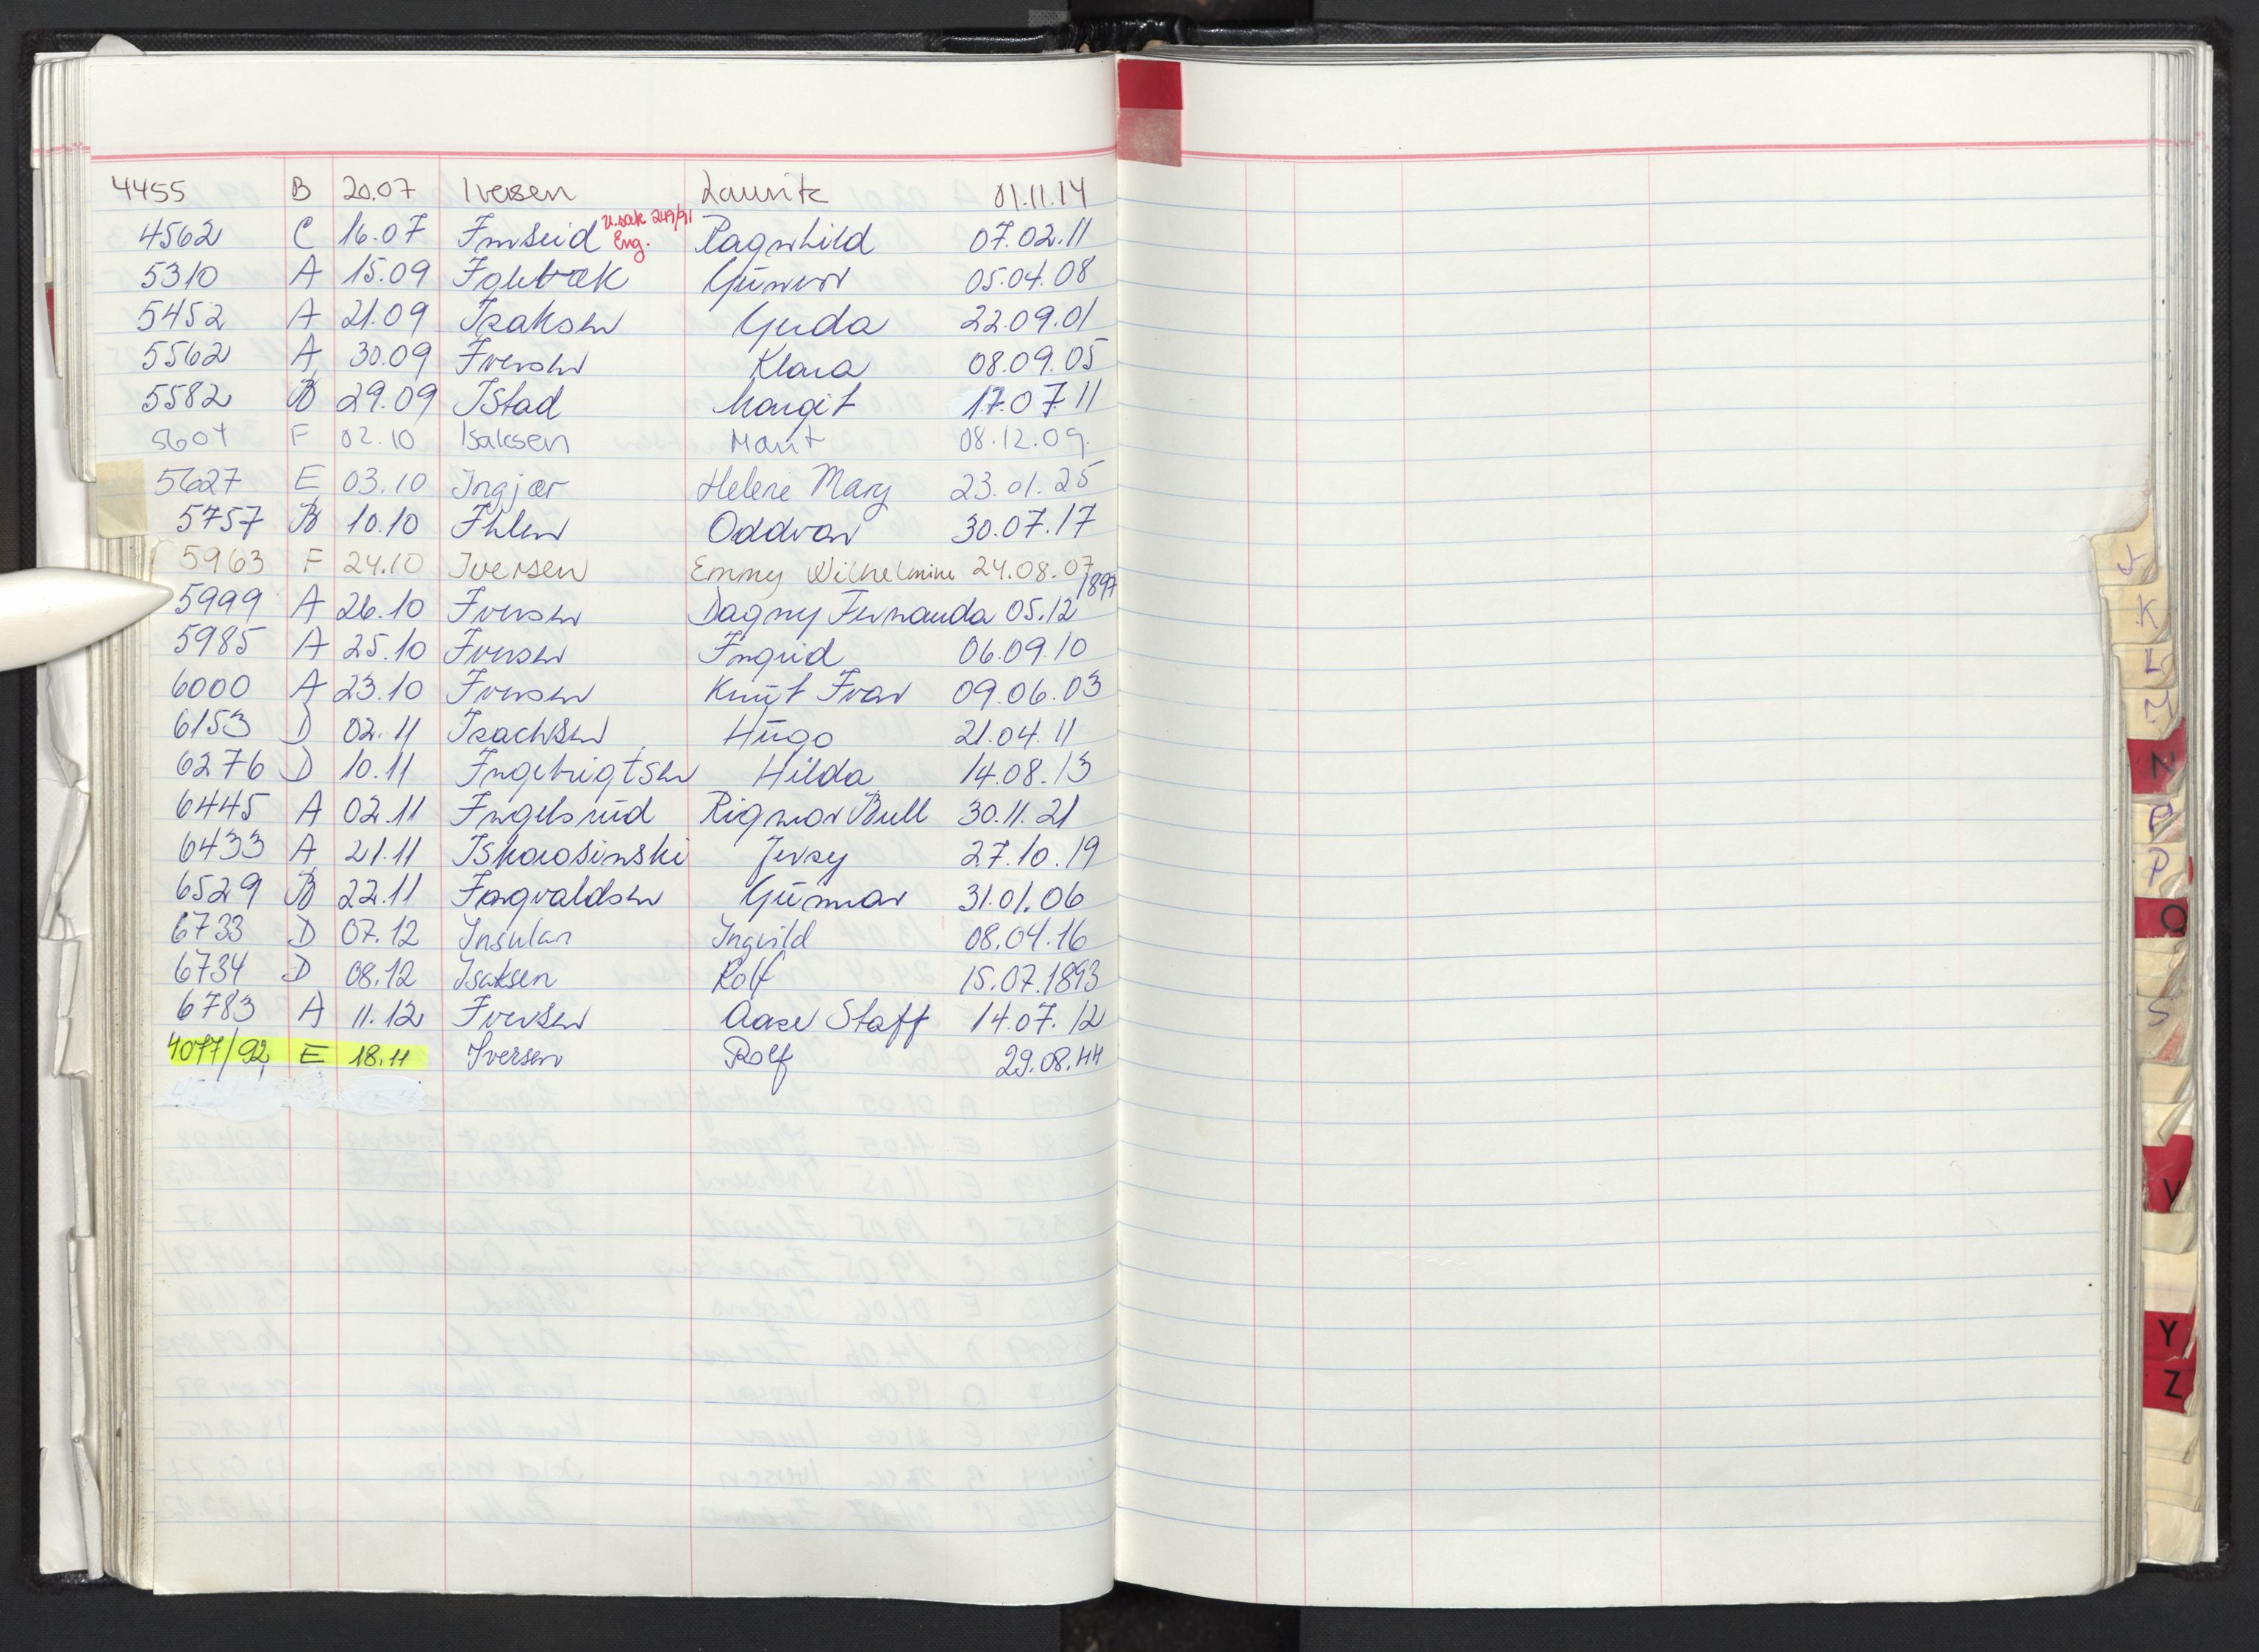 4455 B 20.07 Iversen Lauritz 01.11.14
4562 C 16.07 Imseid U.sak 249/91 Eng. Ragnhild 07.02.11
5310 A 15.09 Gunvor 05.04.08
5452 A 21.09 Isaksen Gerda 22.09.01
5562 A 30.09 Iversen Klara 08.09.05
5582 B 29.09 Istad Margit 17.07 11
5604 F 02.10 Isaksen Marit 08.12.09.
5627 E 03.10 Ingjær Helene Mary 23.01.25
5757 B 10.10 Ihlen Oddvar 30.07.17
5963 F 24.10 Iversen Emmy Wilhelmine 24.08.07
5999 A 26.10 Iversen Dagny Fernanda 05.12 1897
5985 A 25.10 Iversen Ingrid 06.09.10
6000 A 23.10 Iversen Knut Ivar 09.06.03
6153 D 02.11 Isachsen Hugo 21.04.11
6276 D 10.11 Ingebrigtsen Hilda 14.08.13
6445 A 02.11 Ingelsrud Rigmor Bull 30.11.21
6433 A 21.11 Jersy 27.10.19
6529 B 22.11 Ingvaldsen Gunnar 31.01.06
6733 D 07.12 Insulan Ingvild 08.04.16
6734 D 08.12 Isaksen Rolf 15.07.1893
6783 A 11.12 Iversen Aase Staff 14.07.12
4077/92 E 18.11 Iversen Rolf 29.08.44
J
K
L
M
N
O
P
Q
S
V
Y
Z